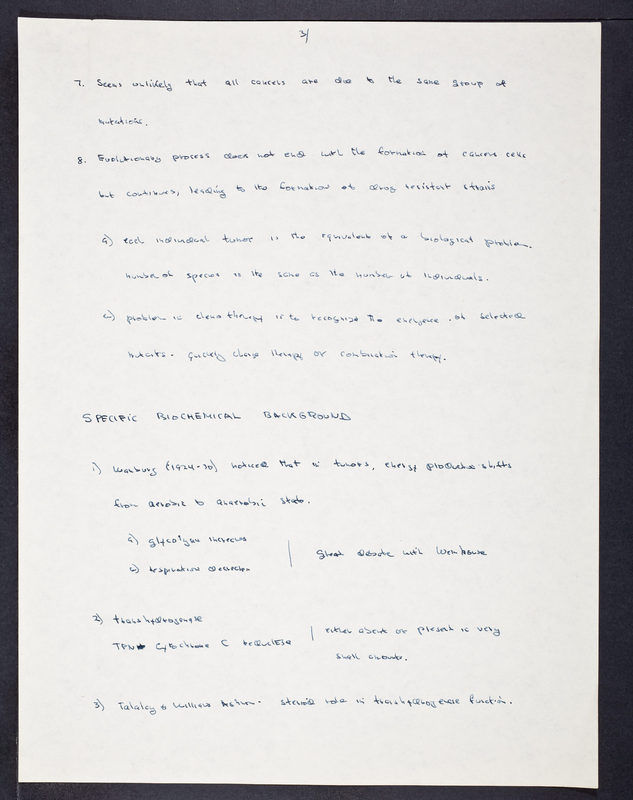 3/
7. Seems unlikely that all cancers are due to the same group of
mutations.
8. Evolutionary process does not end with the formation of cancer cells
but continues, leading to the formation of drug resistant strains
a) each individual tumor is the equivalent of a biological problem.
number of species is the same as the number of individuals.
b) problem in chemotherapy is to recognize the emergence of selected
mutants. quickly change therapy or combination therapy.
SPECIFIC BIOCHEMICAL BACKGROUND
1) Warburg (1924-30) noticed that in tumors, energy production shifts
from aerobic to anaerobic state.
a) glycolysis increases
b) respiration decreases
great debate with Weinhouse
2) transhydrogenase
TPNH Cytochrome C reductase
either absent or present in very
small amounts.
3) Talalay & Williams Ashman. steroid role in transhydrogenase function.